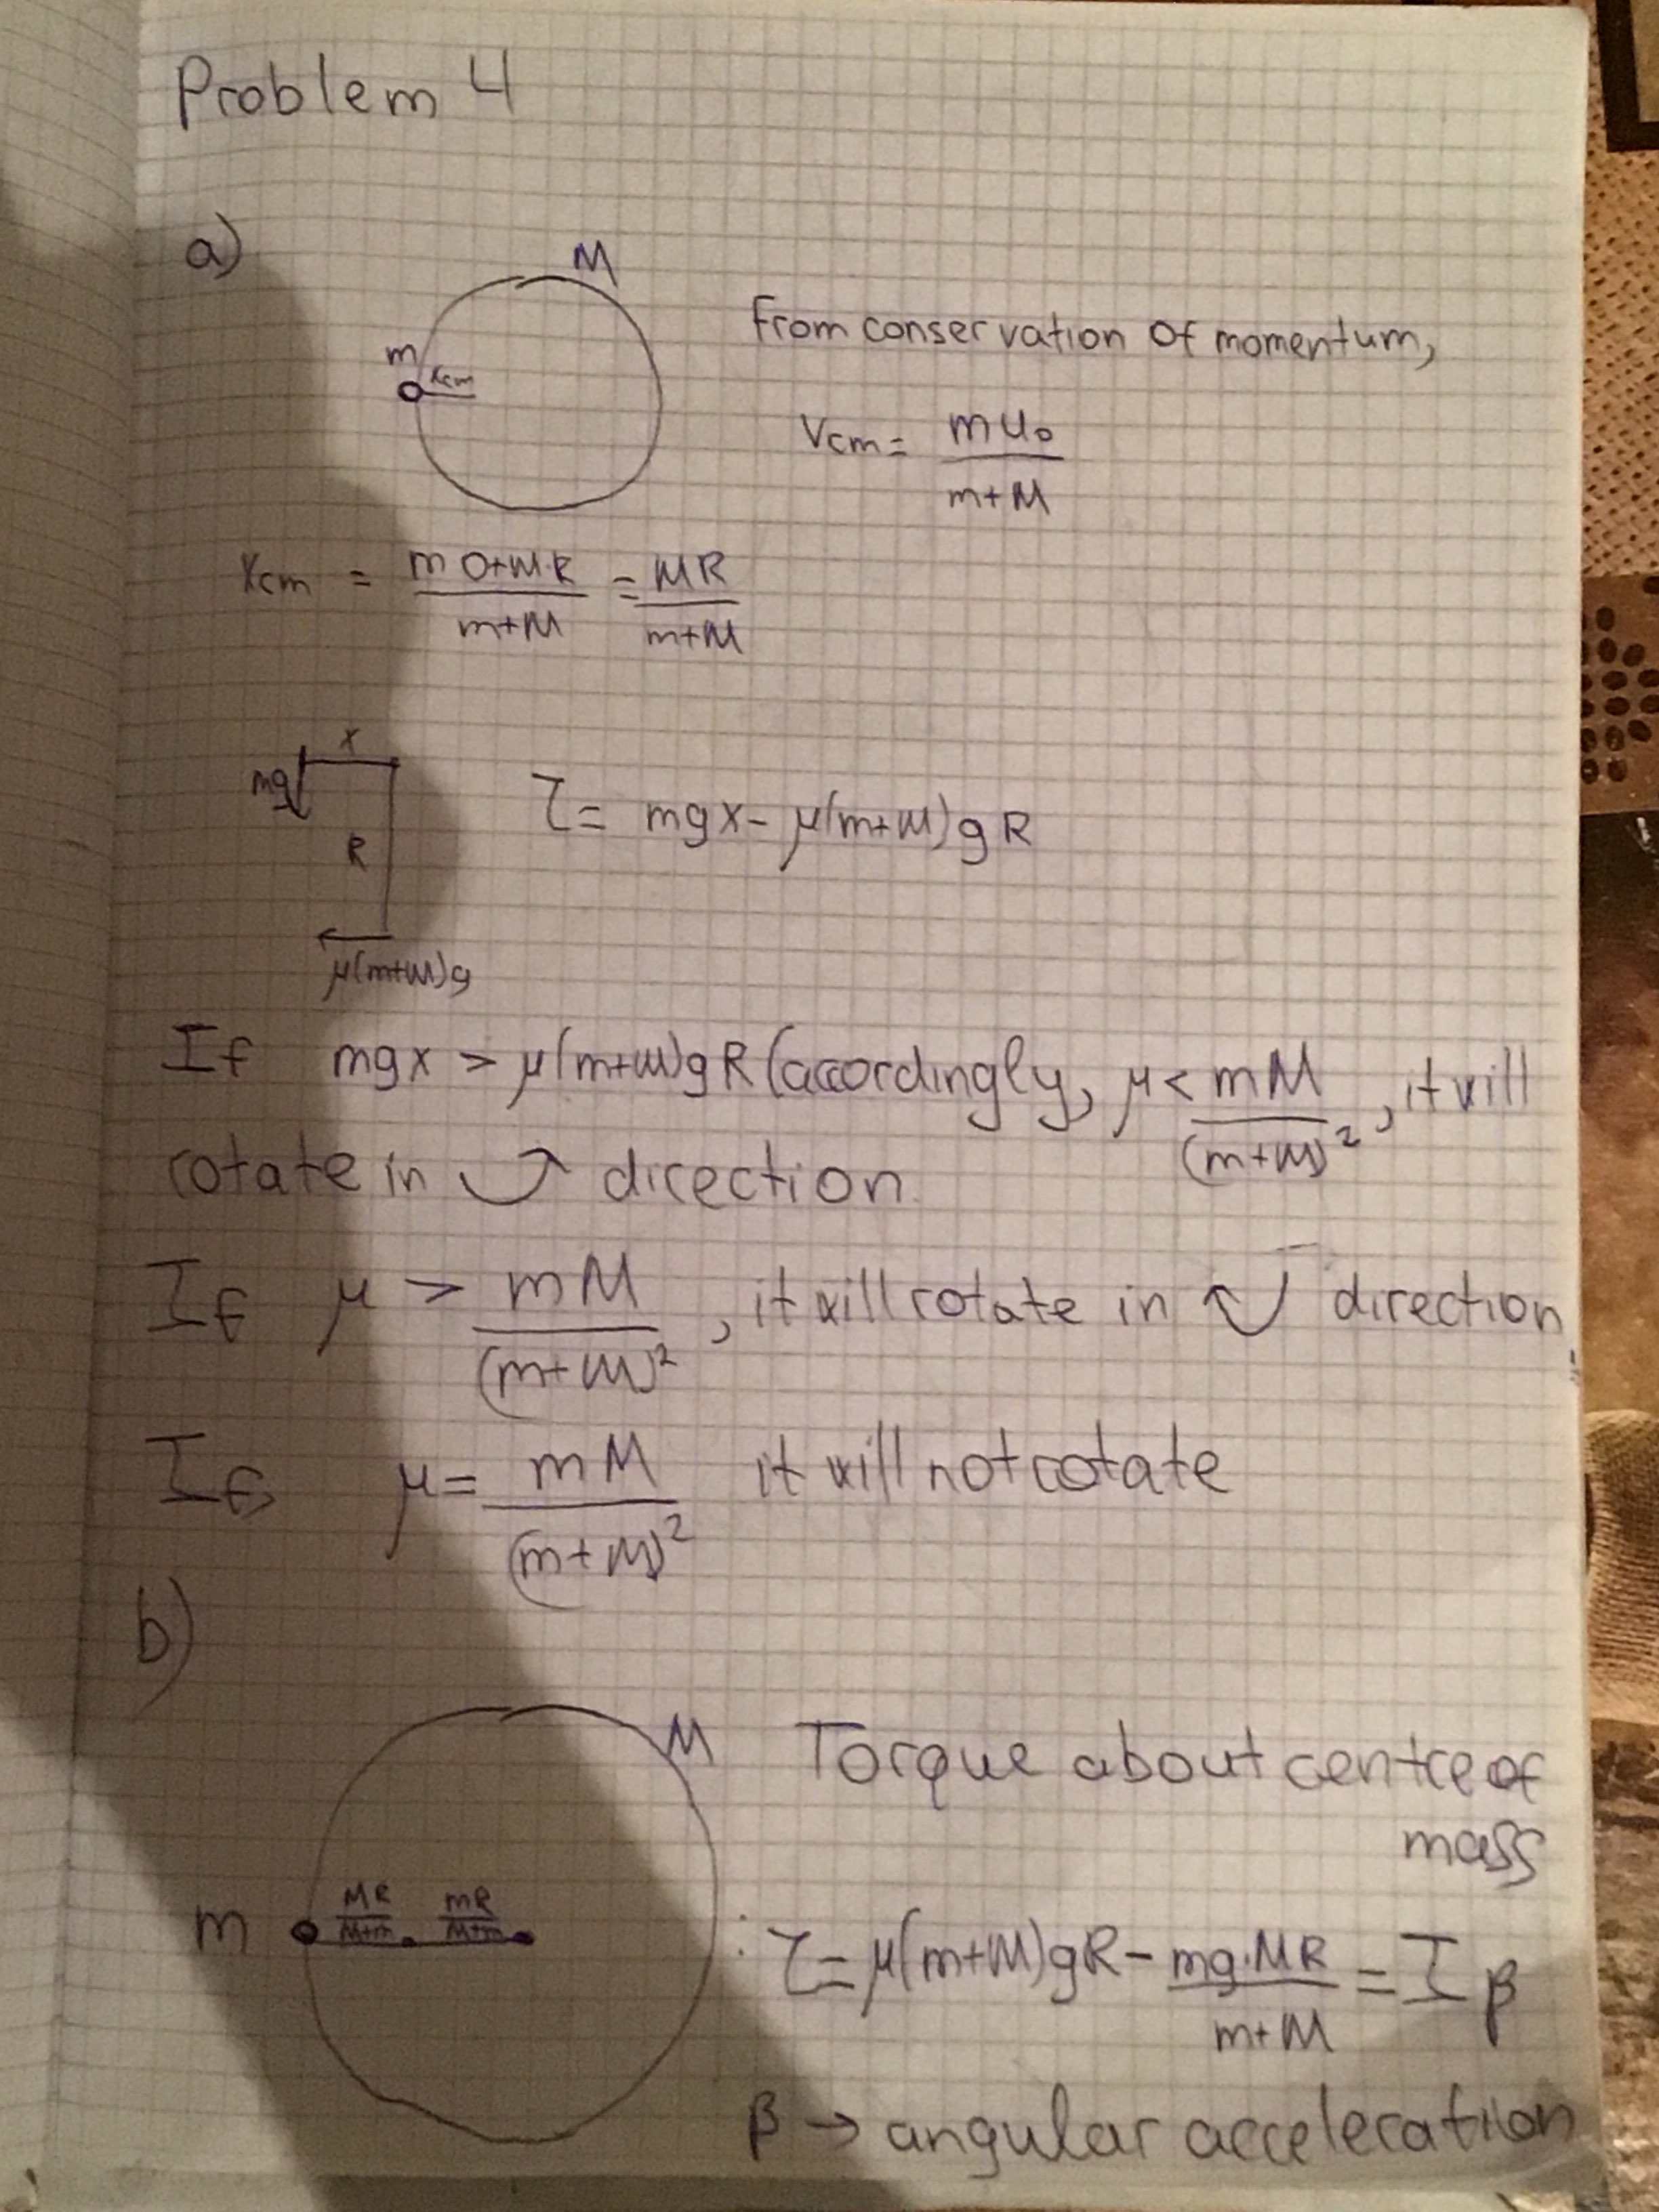 Problem 4
a)
M
m
xcm
From conservation of momentum,
Vcm = mu₀/(m+M)
xcm = (m0+M·R)/(m+M) = MR/(m+M)
x
mg
R
μ(m+M)g
τ = mgx - μ(m+M)gR
If mgx > μ(m+M)gR (accordingly, μ < mM/(m+M)², it will
rotate in ⤻ direction
If μ > mM/(m+M)², it will rotate in ↶ direction
If, μ = mM/(m+M)² it will not rotate
b)
M
m
MR/(M+m) mR/(M+m)
Torque about centre of
mass
: τ = μ(m+M)gR - mg·MR/(m+M) = Iβ
β → angular acceleration